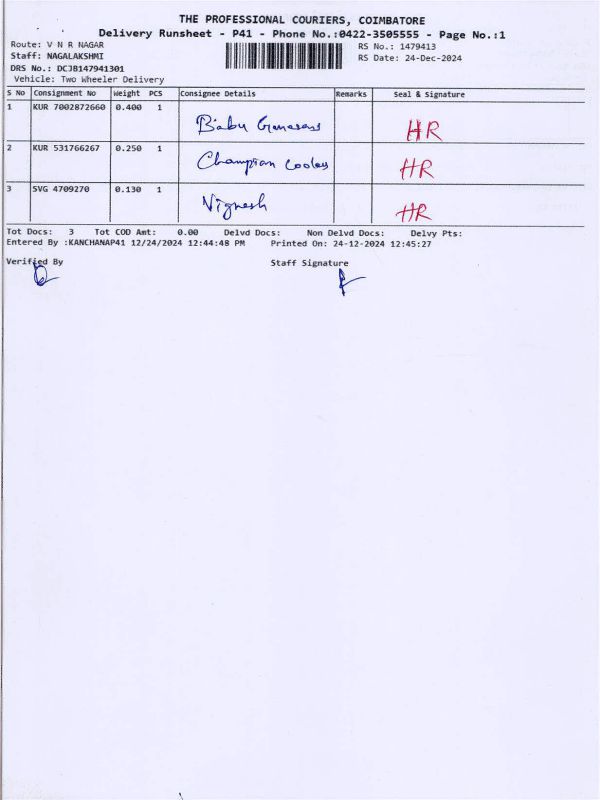 THE PROFESSIONAL COURIERS, COIMBATORE
Delivery Runsheet - P41 - Phone No.:0422-3505555 - Page No.:1
Route: V N R NAGAR
RS No.: 1479413
Staff: NAGALAKSHMI
RS Date: 24-Dec-2024
DRS No.: DCJB147941301
Vehicle: Two Wheeler Delivery
S No Consignment No Weight PCS Consignee Details Remarks Seal & Signature
1 KUR 7002872660 0.400 1 Babu HR
2 KUR 531766267 0.250 1 Champian HR
3 SVG 4709270 0.130 1 Vignesh HR
Tot Docs: 3 Tot COD Amt: 0.00 Delvd Docs: Non Delvd Docs: Delvy Pts:
Entered By :KANCHANAP41 12/24/2024 12:44:48 PM Printed On: 24-12-2024 12:45:27
Verified By Staff Signature